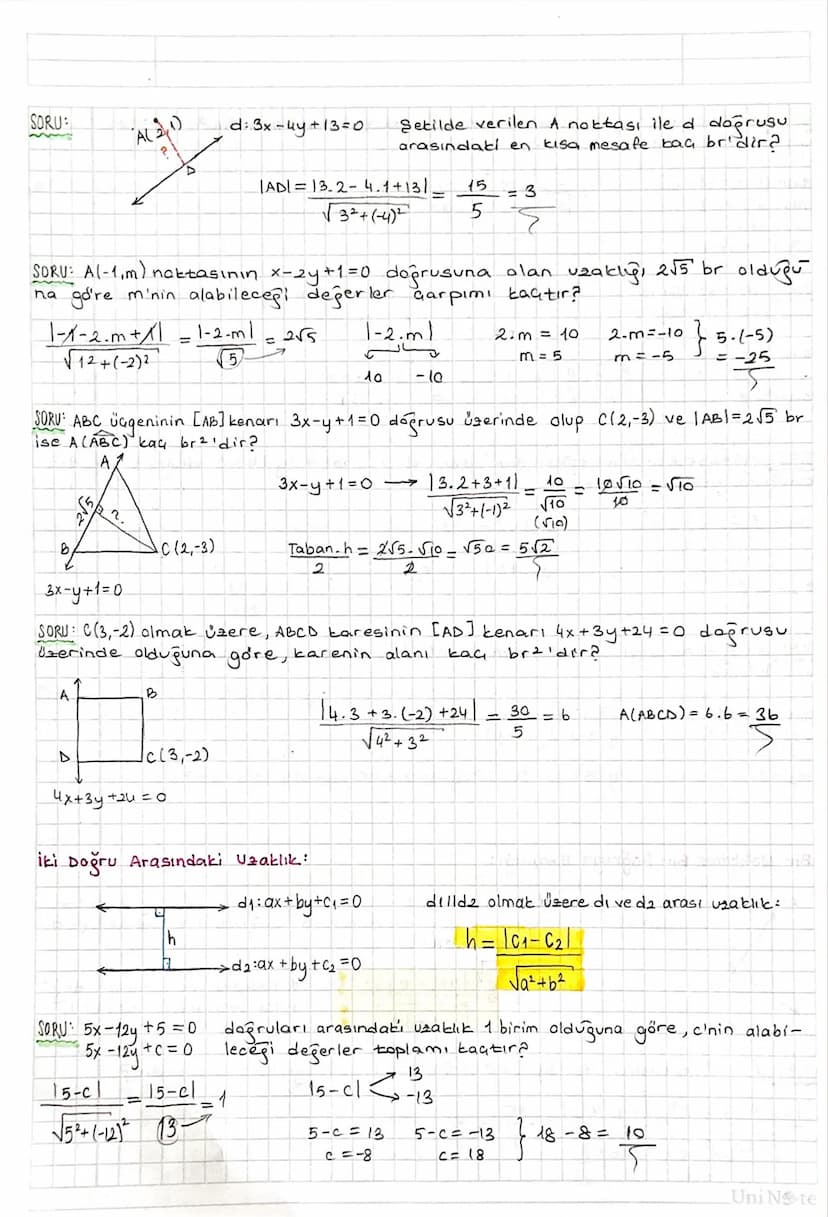 SORU: A(2,1) d: 3x-4y+13=0 Şekilde verilen A noktası ile d doğrusu
arasındaki en kısa mesafe kaç br'dir?
?
D
|AD| = |3.2-4.1+13| / √3²+(-4)² = 15/5 = 3
SORU: A(-1,m) noktasının x-2y+1=0 doğrusuna olan uzaklığı 2√5 br olduğu
na göre m'nin alabileceği değerler çarpımı kaçtır?
|-1-2.m+1| / √1²+(-2)² = |-2.m| / √5 = 2√5 |-2.m| 2.m = 10 2.m=-10 } 5.(-5)
10 -10 m=5 m=-5 = -25
SORU: ABC üçgeninin [AB] kenarı 3x-y+1=0 doğrusu üzerinde olup C(2,-3) ve |AB|=2√5 br
ise A(ABC) kaç br²'dir?
A
2√5 ?
B C(2,-3)
3x-y+1=0
3x-y+1=0 → |3.2+3+1| / √3²+(-1)² = 10/√10 = 10√10/10 = √10
(√10)
Taban.h / 2 = 2√5.√10 / 2 = √50 = 5√2
SORU: C(3,-2) olmak üzere, ABCD karesinin [AD] kenarı 4x+3y+24=0 doğrusu
üzerinde olduğuna göre, karenin alanı kaç br²'dir?
A B
D C(3,-2)
4x+3y+24=0
|4.3+3.(-2)+24| / √4²+3² = 30/5 = 6 A(ABCD) = 6.6 = 36
İki Doğru Arasındaki Uzaklık:
d1: ax+by+c1=0 d1//d2 olmak üzere d1 ve d2 arası uzaklık:
h
d2: ax+by+c2=0
h = |c1-c2| / √a²+b²
SORU: 5x-12y+5=0 doğruları arasındaki uzaklık 1 birim olduğuna göre, c'nin alabi-
5x-12y+c=0 leceği değerler toplamı kaçtır?
|5-c| / √5²+(-12)² = |5-c| / 13 = 1 |5-c| 13
-13
5-c=13 5-c=-13 } 18-8 = 10
c=-8 c=18
UniNote